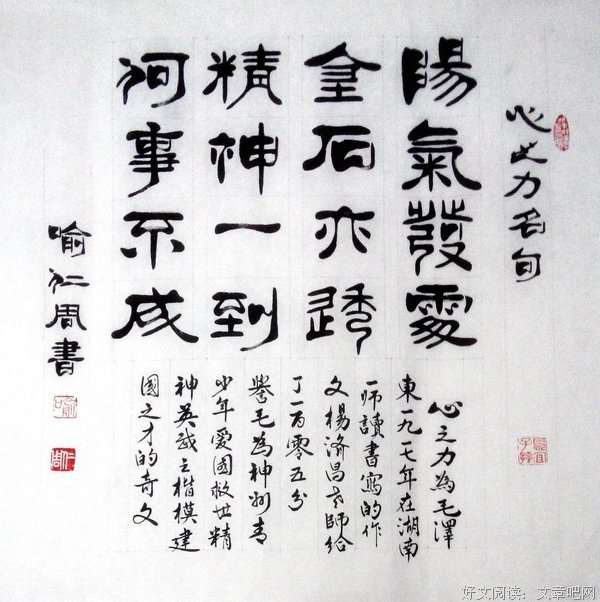 心之力名句
陽氣發處
金石亦透
精神一到
何事不成
心之力為毛澤
東一九一七年在湖南
一師讀書寫的作
文楊濟昌老師給
了一百零五分
譽毛為神州青
少年愛國救世精
神英武之楷模建
國之才的奇文
喻仁周書
仁周
好文阅读：文章吧网